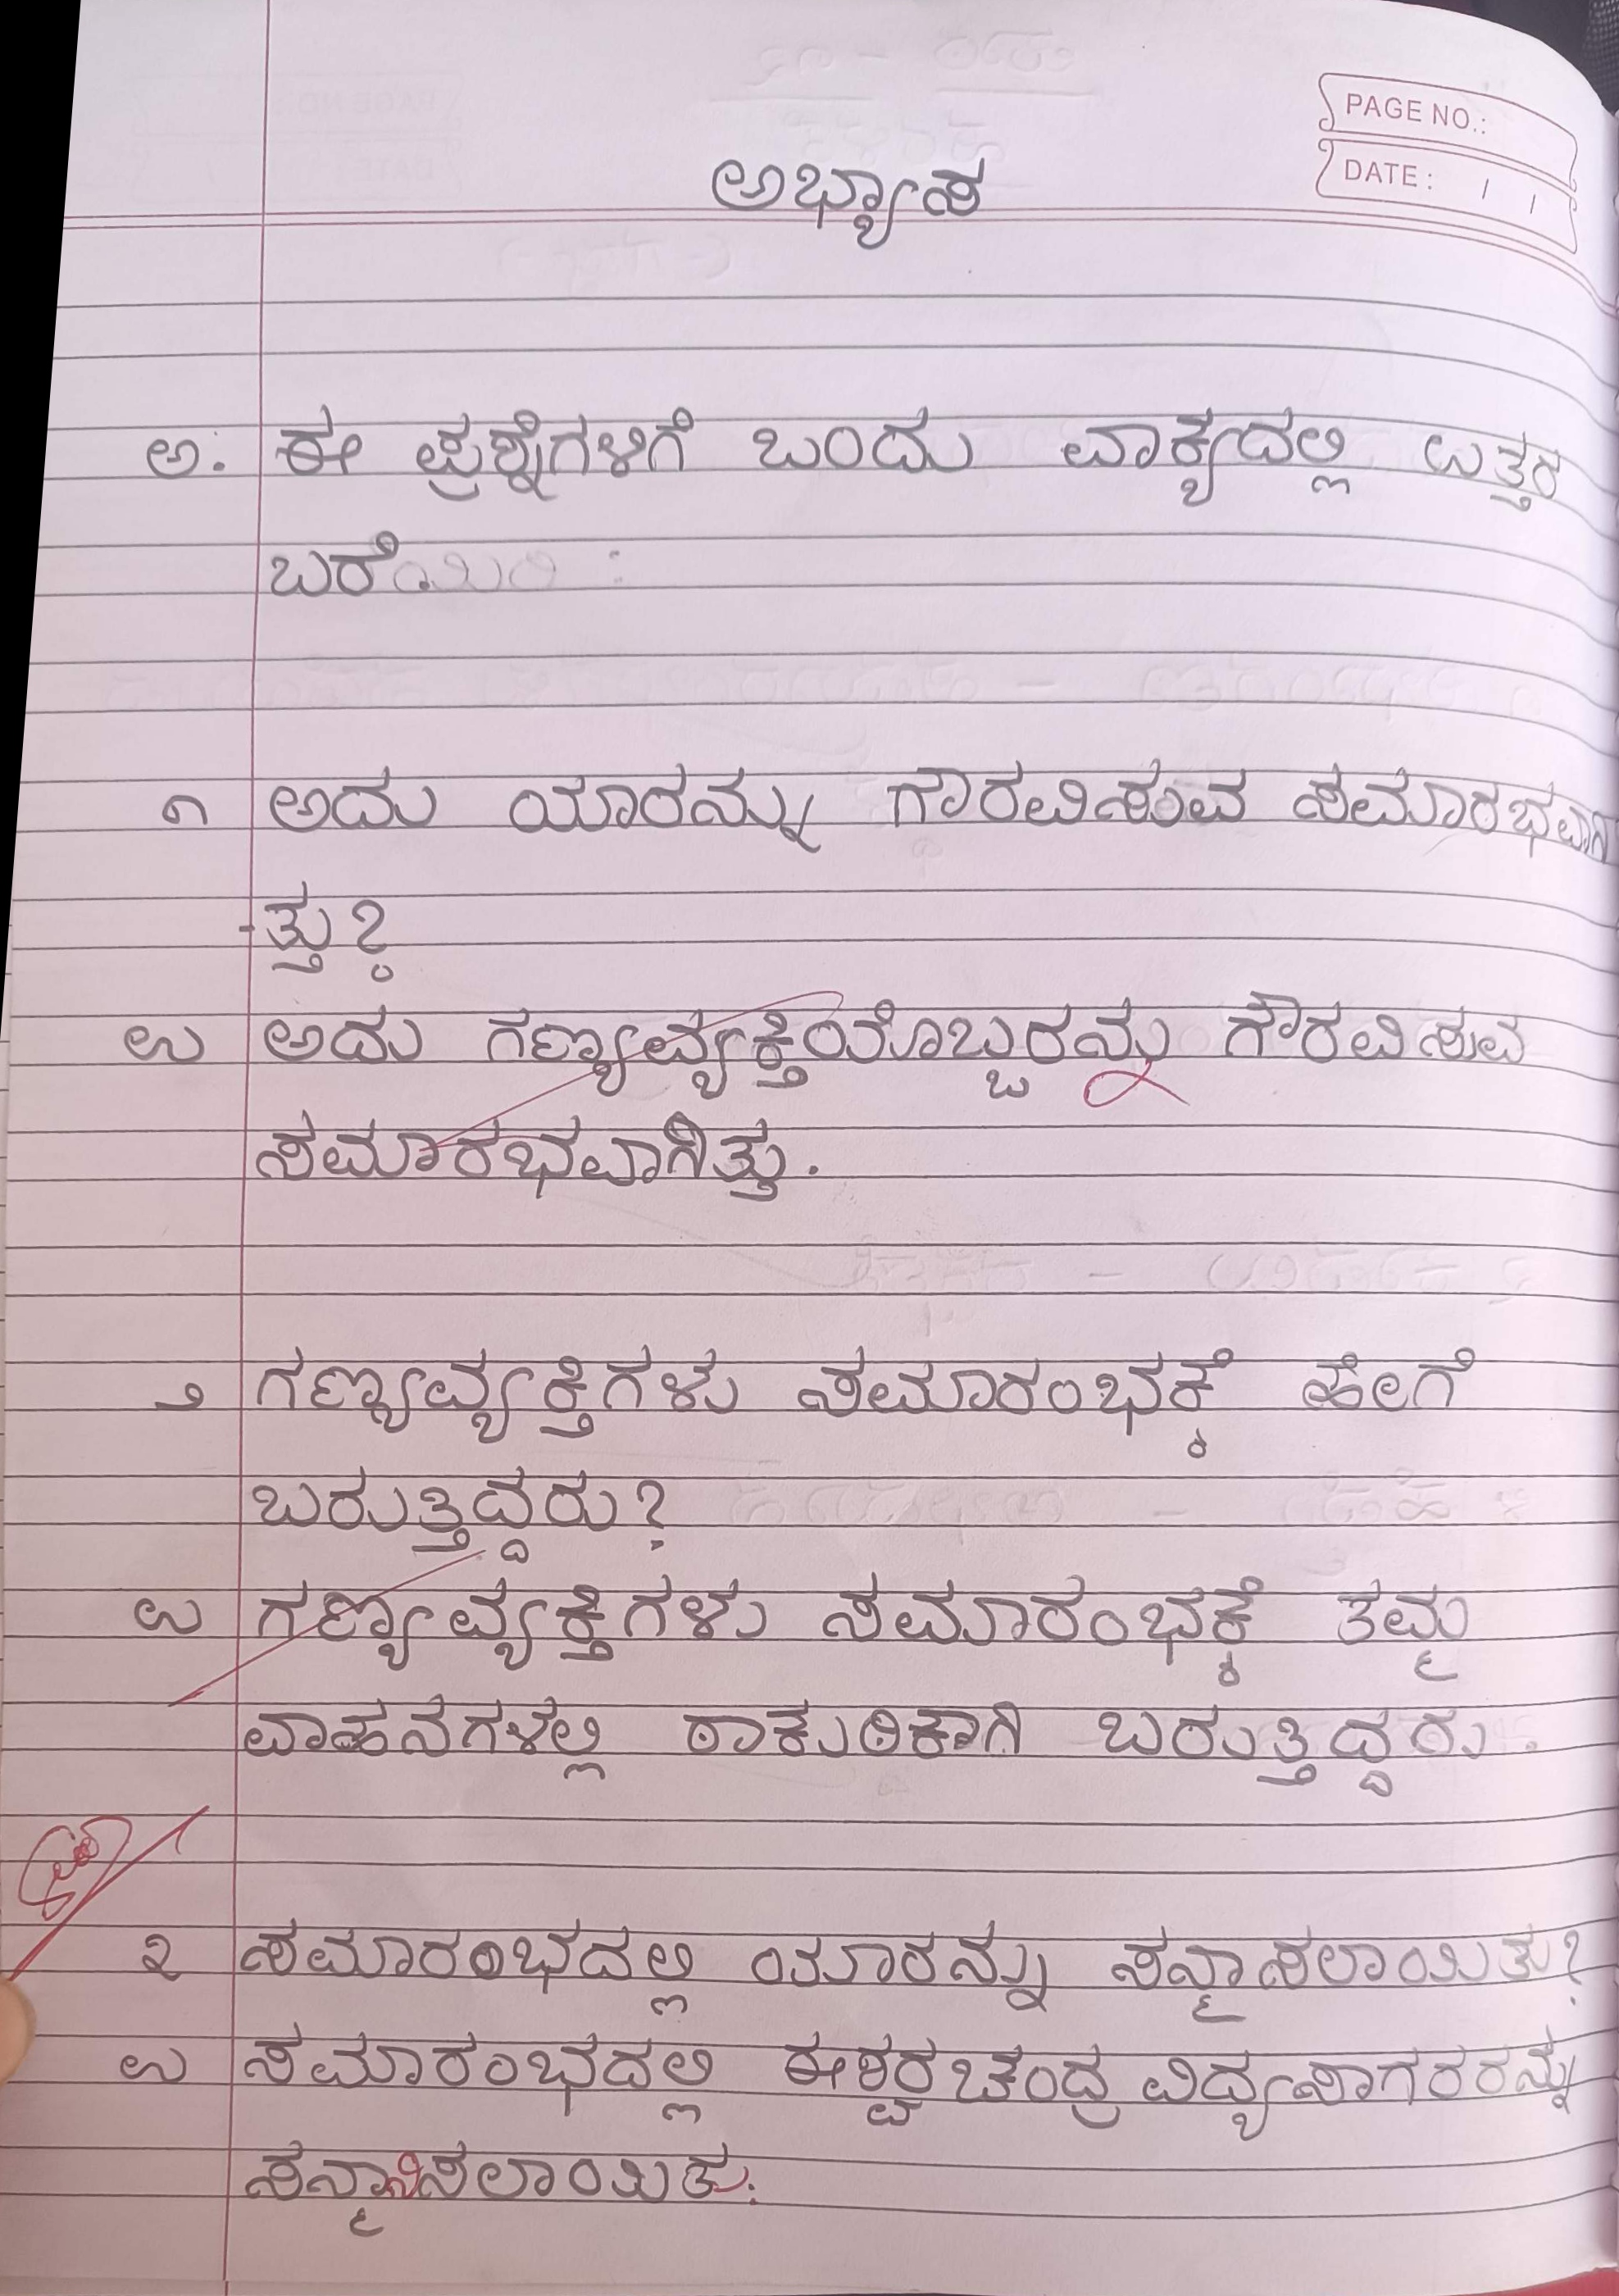 PAGE NO.:
DATE: / /
ಅಭ್ಯಾಸ
ಅ. ಈ ಪ್ರಶ್ನೆಗಳಿಗೆ ಒಂದು ವಾಕ್ಯದಲ್ಲಿ ಉತ್ತರ
ಬರೆಯಿರಿ :
೧ ಅದು ಯಾರನ್ನು ಗೌರವಿಸುವ ಸಮಾರಭವಾಗಿ
-ತ್ತು?
ಉ ಅದು ಗಣ್ಯವ್ಯಕ್ತಿಯೊಬ್ಬರನ್ನು ಗೌರವಿಸುವ
ಸಮಾರಭವಾಗಿತ್ತು.
೨ ಗಣ್ಯವ್ಯಕ್ತಿಗಳು ಸಮಾರಂಭಕ್ಕೆ ಹೇಗೆ
ಬರುತ್ತಿದ್ದರು?
ಉ ಗಣ್ಯವ್ಯಕ್ತಿಗಳು ಸಮಾರಂಭಕ್ಕೆ ತಮ್ಮ
ವಾಹನಗಳಲ್ಲಿ ಠಾಕುಠಿಕಾಗಿ ಬರುತ್ತಿದ್ದರು.
೩ ಸಮಾರಂಭದಲ್ಲಿ ಯಾರನ್ನು ಸನ್ಮಾಸಲಾಯಿತು?
ಉ ಸಮಾರಂಭದಲ್ಲಿ ಈಶ್ವರಚಂದ್ರ ವಿದ್ಯಸಾಗರರನ್ನು
ಸನ್ಮಾನಿಸಲಾಯಿತು.